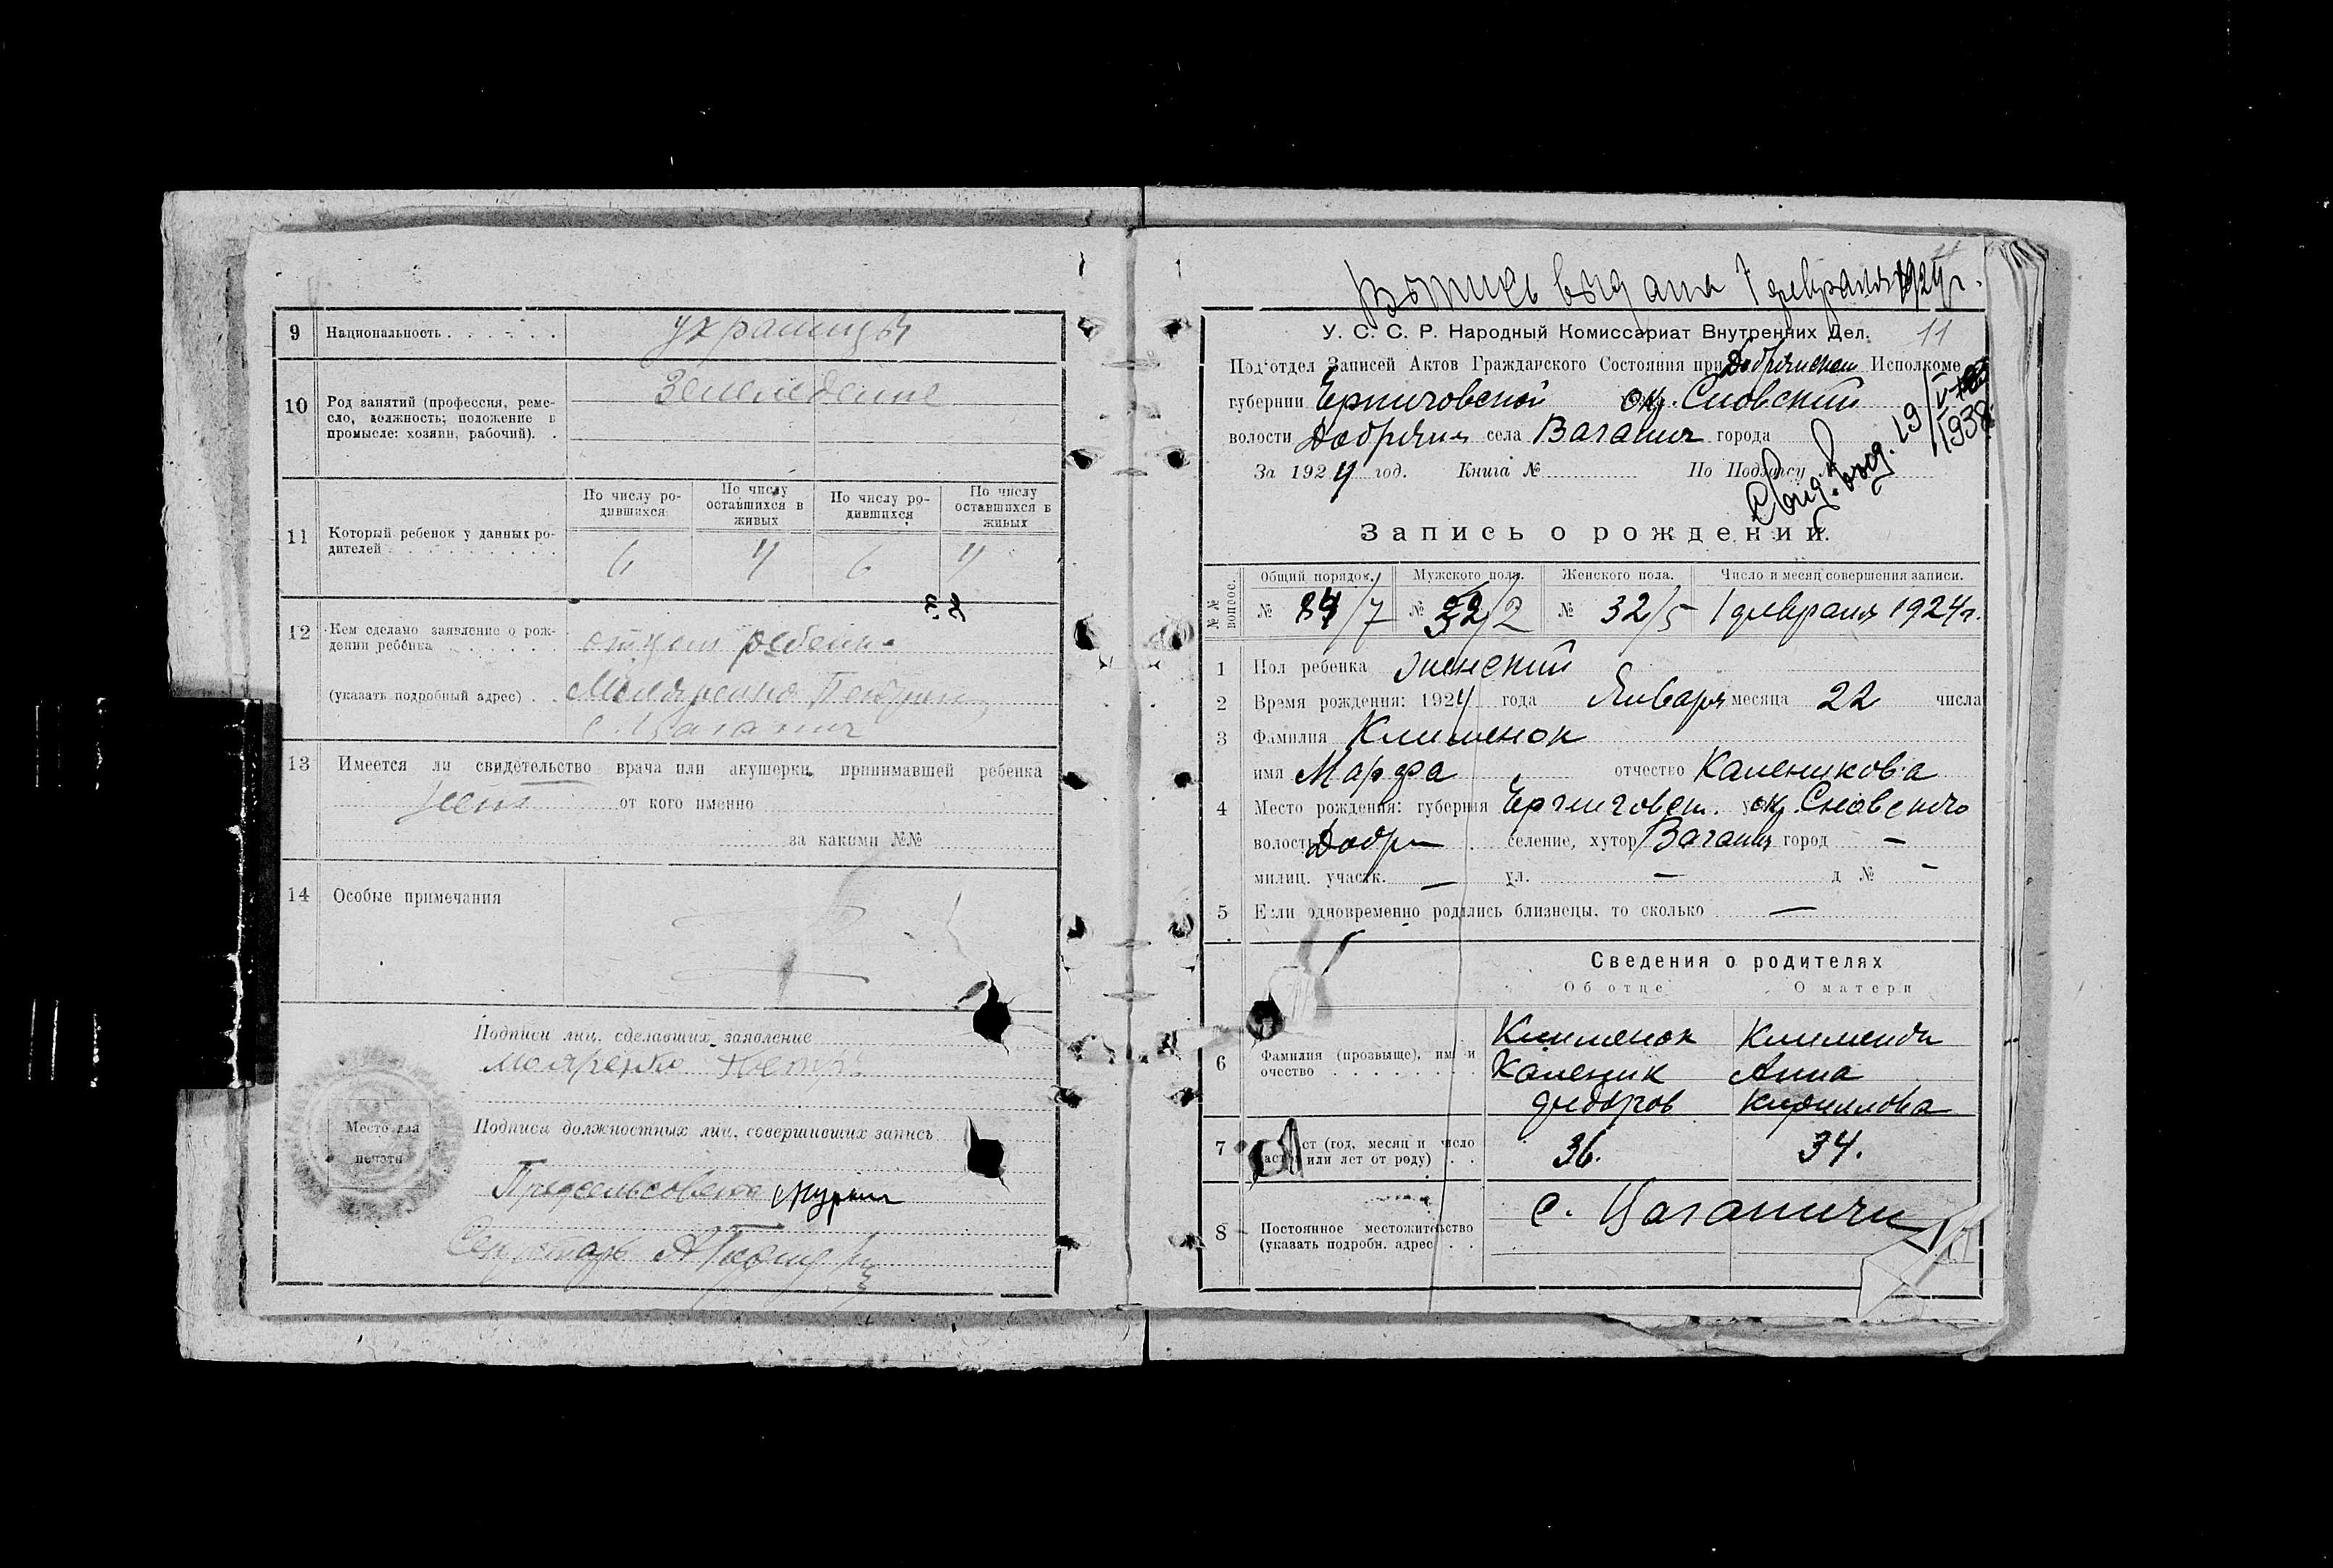 9 Национальность украинцы
10 Род занятий (профессия, реме-
сло, должность; положение в
промысле: хозяин, рабочий).
Земледелие
11 Который ребенок у данных ро-
дителей
По числу ро-
дившихся
По числу
оставшихся в
живых
По числу ро-
дившихся
По числу
оставшихся в
живых
6 4 6 4
12 Кем сделано заявление о рож-
дении ребёнка
отцом ребенка
(указать подробный адрес)
13 Имеется ли свидетельство врача или акушерки, принимавшей ребенка
нет от кого именно
за какими №№
14 Особые примечания
Подписи лиц, сделавших заявление
Подписи должностных лиц, совершивших запись
Место для
печати
Предсельсовета
Секретарь
Выпись выдана 7 февраля 1924 г.
У. С. С. Р. Народный Комиссариат Внутренних Дел.
11
Под'отдел Записей Актов Гражданского Состояния при Добрянском Исполкоме
губернии Черниговской ок. Сновский
волости Добрянск села Ваганич города
За 1924 год. Книга № По Подлису
Свид. выд. 19/V 1938
Запись о рождении.
№№ вопрос.
Общий порядок. Мужского пола. Женского пола. Число и месяц совершения записи.
№ 84/7 № 32/2 № 32/5 1 февраля 1924 г.
1 Пол ребенка женский
2 Время рождения: 1924 года Января месяца 22 числа
3 Фамилия Клименок
имя Марфа отчество Каленикова
4 Место рождения: губерния Черниговск. ок. Сновского
волость Добр селение, хутор Ваганич город —
милиц. участк. — ул. — д № -
5 Если одновременно родились близнецы, то сколько —
Сведения о родителях
Об отце О матери
6 Фамилия (прозвыще), имя и
очество
Клименок
Каленик
Федоров
Клименок
Анна
Кирилова
7 ст (год, месяц и число
или лет от роду)
36. 34.
8 Постоянное местожительство
(указать подробн. адрес)
с. Ваганичи